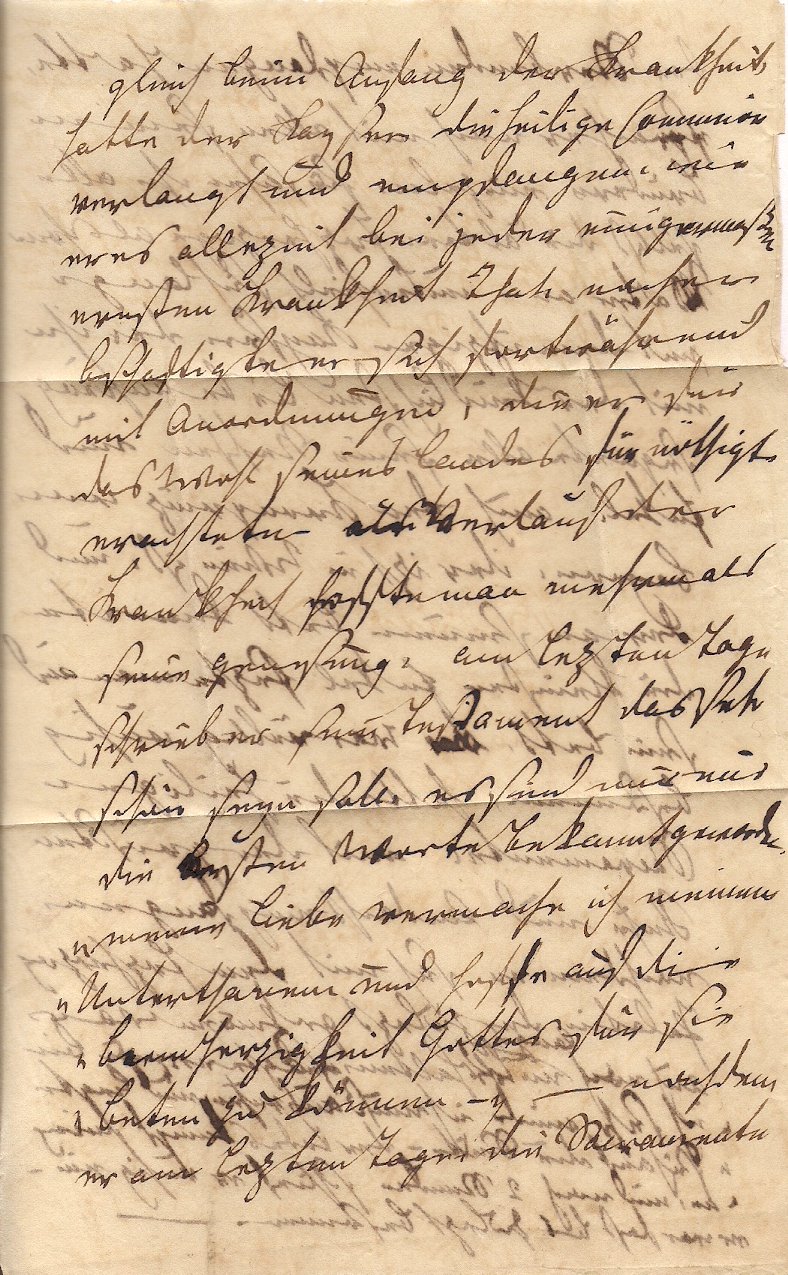 gleich beim Anfang der Krankheit
hatte der Kayser die heilige Comunion
verlangt und empfangen, wie
er es allezeit bei jeder einigermaßen
ernsten Krankheit that. nacher
beschäftigte er sich fortwährend
mit Anordnungen, die er für
das Wohl seines Landes für nöthig
erachtete. Verlauf der
Krankheit hoffte man mehrmals
seine genesung. am lezten tage
schrieb er sein Testament das sehr
schön seyn soll. es sind nur
die ersten Worte bekannt geworden.
„meine liebe vermache ich meinen
„Unterthanen und hoffe auf die
„barmherzigkeit Gottes für sie
„beten zu können —" — nachdem
er am lezten tage die Sacramente